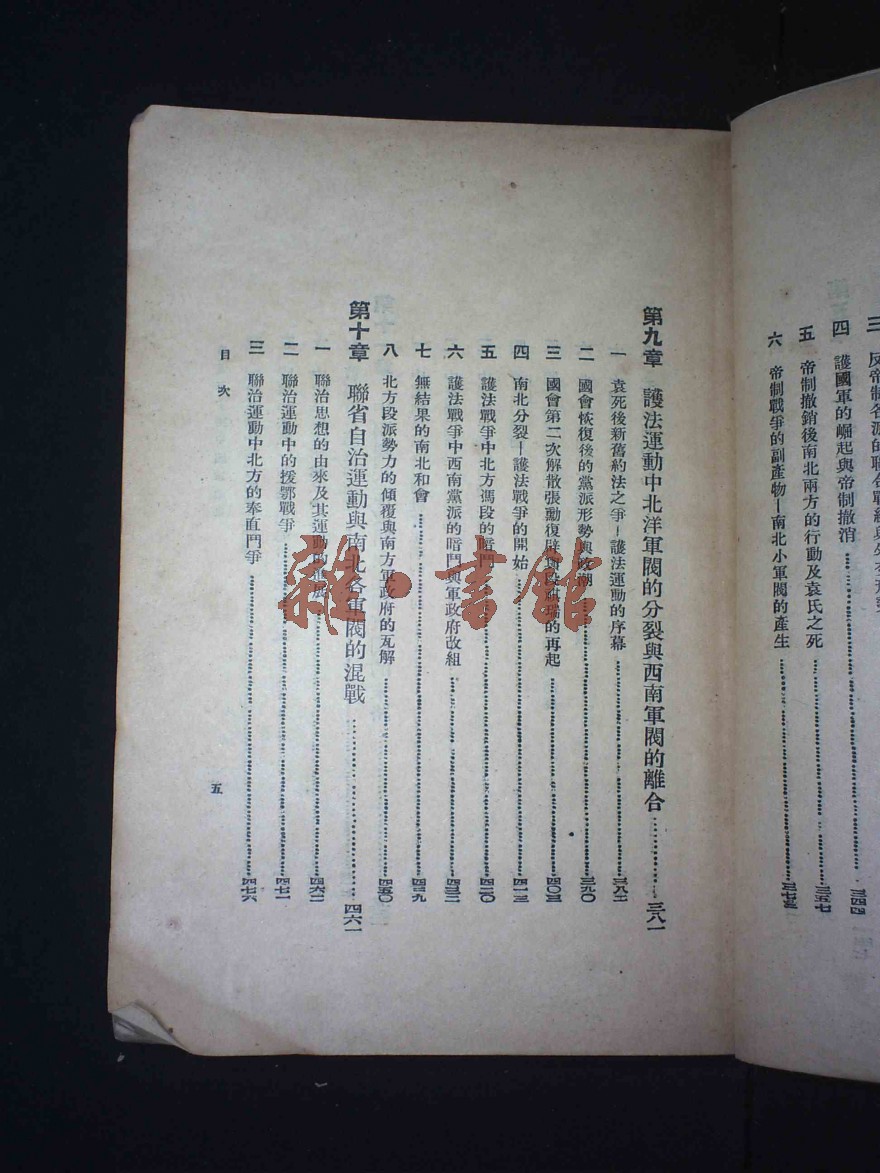 四 護國軍的崛起與帝制撤消……三四四
五 帝制撤銷後南北兩方的行動及袁氏之死……三五七
六 帝制戰爭的副產物—南北小軍閥的產生……三七三
第九章 護法運動中北洋軍閥的分裂與西南軍閥的離合……三八一
一 袁死後新舊約法之爭—護法運動的序幕……三八二
二 國會恢復後的黨派形勢與政潮……三九〇
三 國會第二次解散張勳復辟與段祺瑞的再起……四〇三
四 南北分裂—護法戰爭的開始……四一三
五 護法戰爭中北方馮段的暗鬥……四二〇
六 護法戰爭中西南黨派的暗鬥與軍政府改組……四三三
七 無結果的南北和會……四三九
八 北方段派勢力的傾覆與南方軍政府的瓦解……四五〇
第十章 聯省自治運動與南北各軍閥的混戰……四六一
一 聯治思想的由來及其運動的……四六二
二 聯治運動中的援鄂戰爭……四七一
三 聯治運動中北方的奉直鬥爭……四七六
目次
五
雜·書館